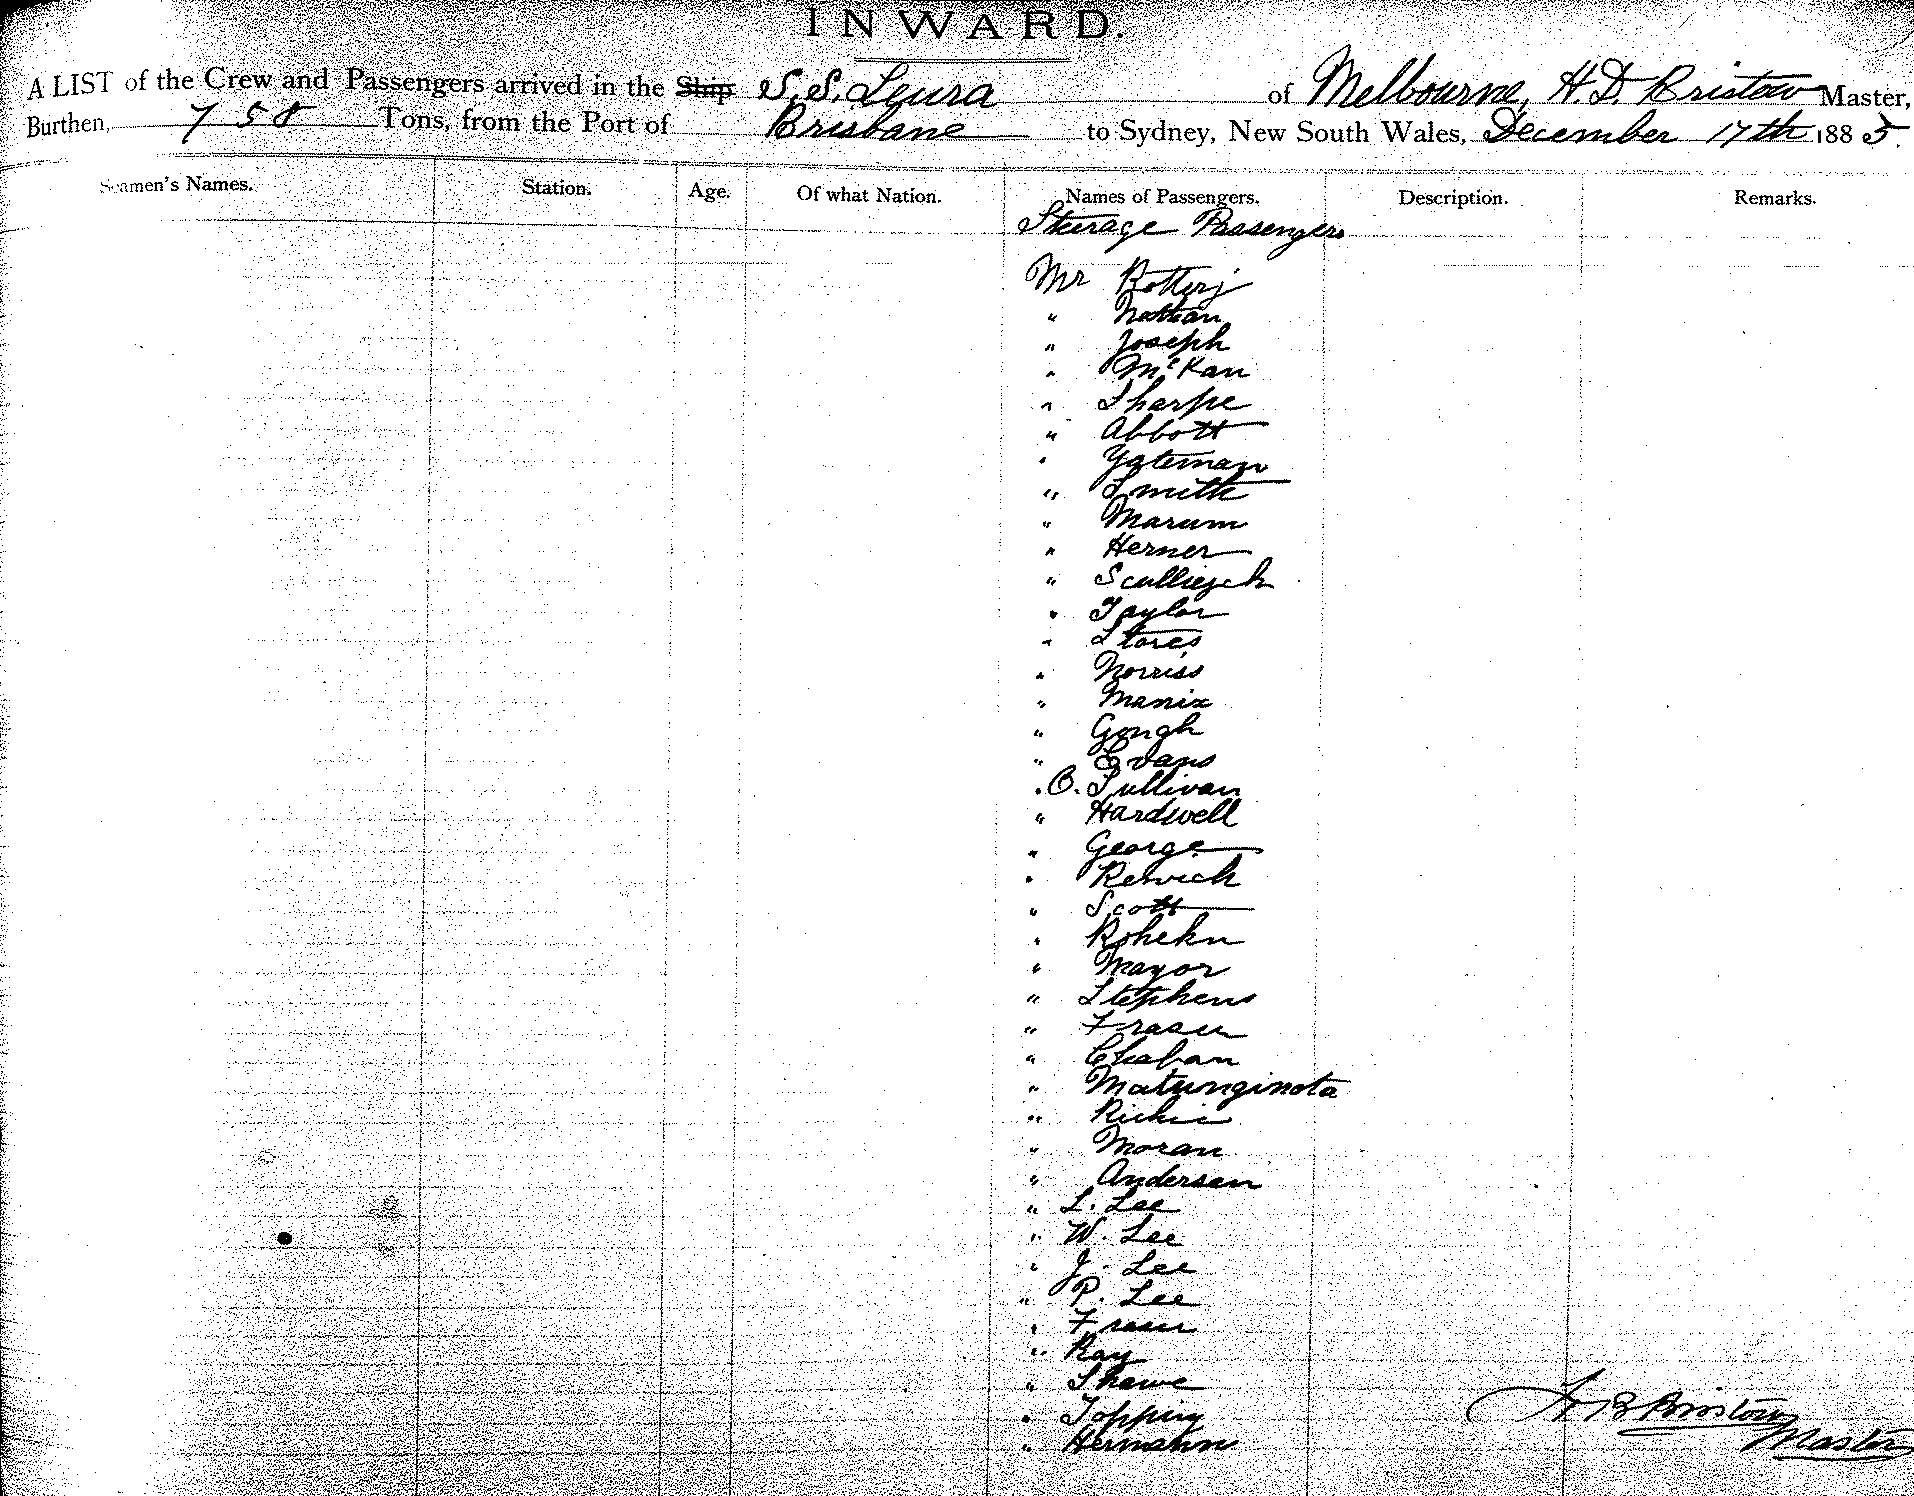 INWARD.
A LIST of the Crew and Passengers arrived in the Ship S.S. Leura of Melbourne, H.D. Bristow Master,
Burthen, 758 Tons, from the Port of Brisbane to Sydney, New South Wales, December 17th 1885.
Seamen's Names. Station. Age. Of what Nation. Names of Passengers. Description. Remarks.
Steerage Passengers
Mr
" Nathan
" Joseph
" McKan
" Sharpe
" Abbott
" Yateman
" Smith
" Marum
" Herner
"
" Taylor
" Stores
" Norriss
" Manix
" Gough
" Evans
" O. Sullivan
" Hardwell
" George
" Renwick
" Scott
"
" Mayor
" Stephens
" Fraser
"
" Matunginota
" Richie
" Moran
" Andersen
" L. Lee
" W. Lee
" J. Lee
" P. Lee
" Fraser
" Ray
" Shawe
" Topping
" Hermann
Bristow
Master